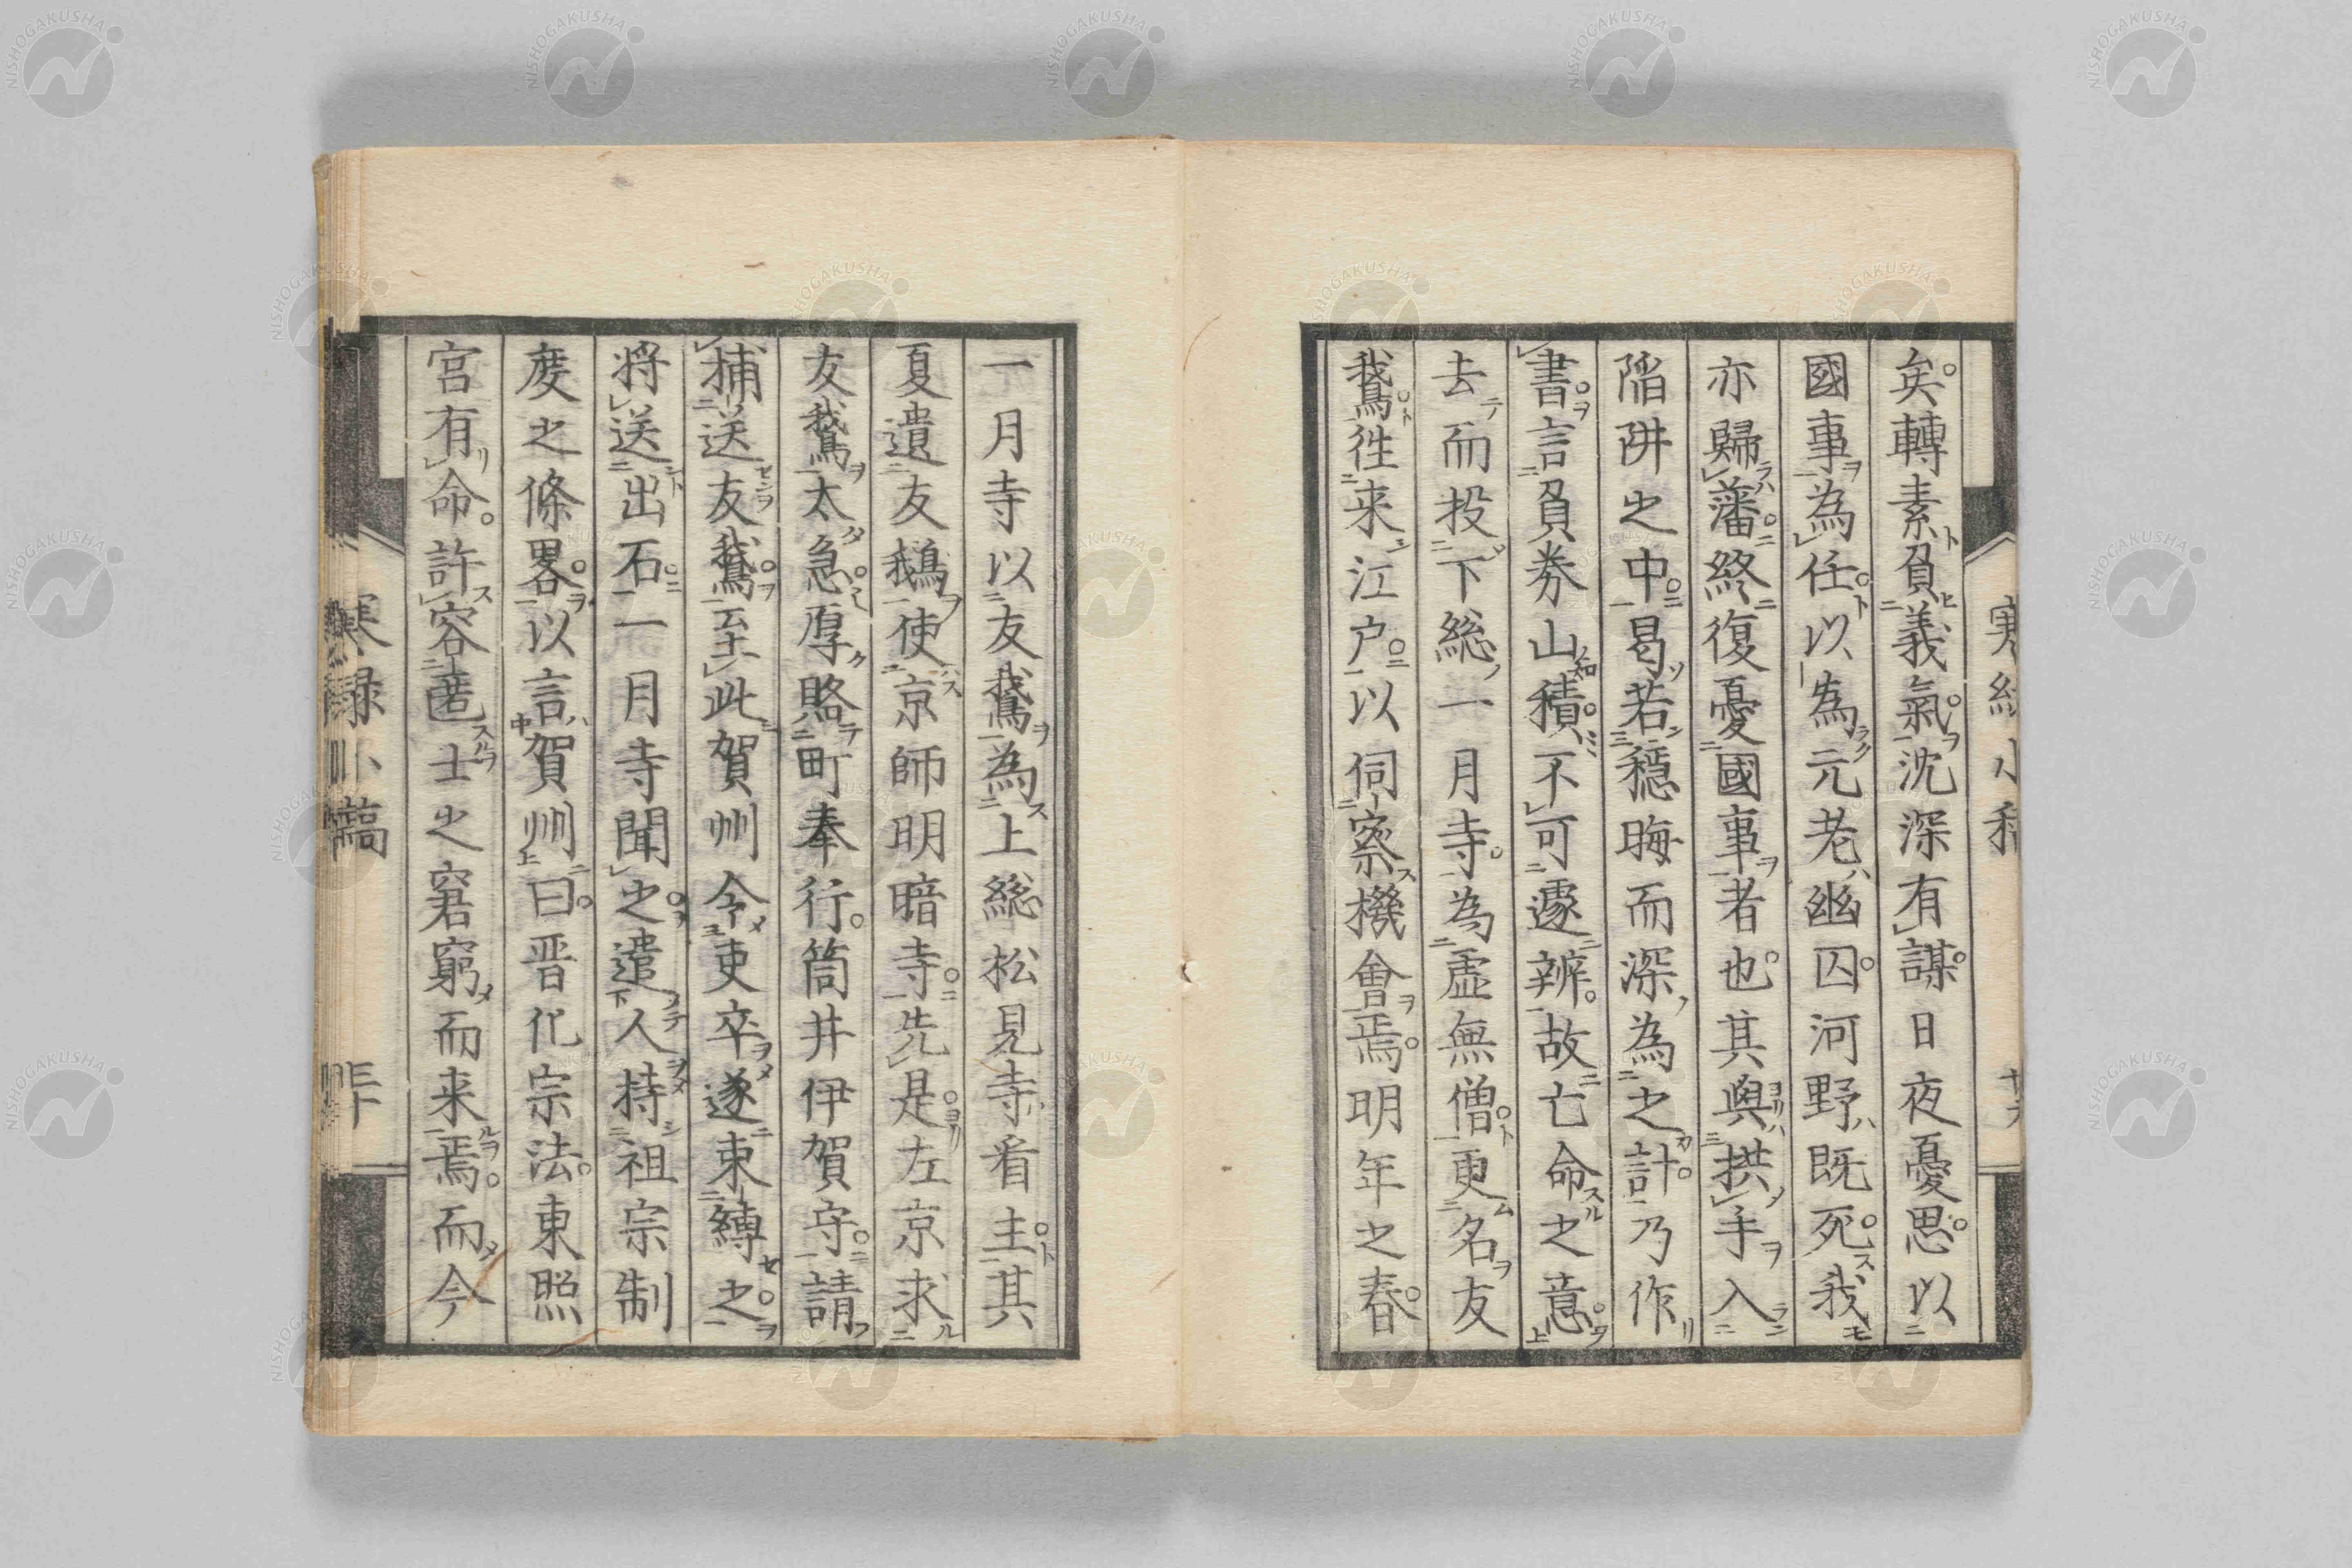 矣轉素負義氣沈深有謀日夜憂思以
國事為任以為元老幽囚河野既死我
亦歸藩終復憂國事者也其與拱手入
陷阱之中曷若穩晦而深為之計乃作
書言負券山積不可遽辨故亡命之意
去而投下総一月寺為虛無僧更名友
鵞徃来江户以伺察機會焉明年之春
一月寺以友鵞為上総松見寺看主其
夏遣友鵞使京師明暗寺先是左京求
友鵞太急厚賂町奉行筒井伊賀守請
捕送友鵞云土此賀州令吏卒遂束縛之
將送出石一月寺聞之遣人持祖宗制
度之條畧以言賀州曰晋化宗法東照
宮有命許容匿士之窘窮而来焉而今
寒緑小稿
NISHOGAKUSHA